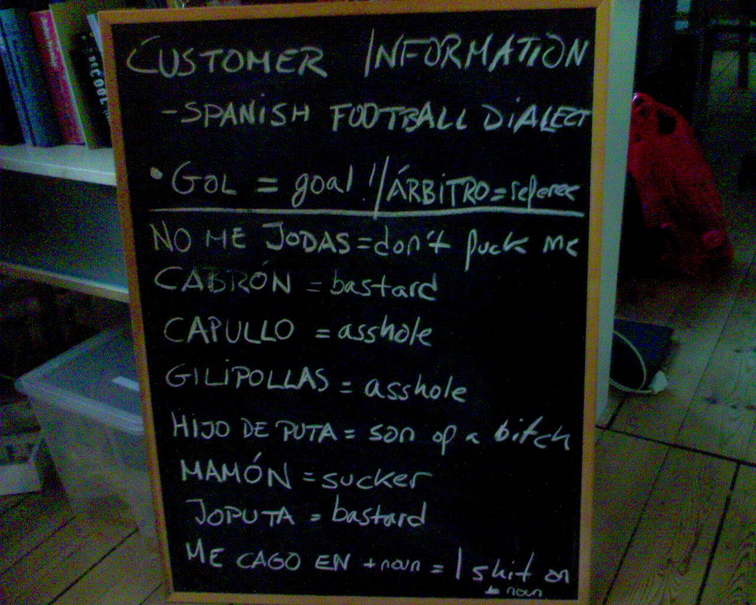 CUSTOMER INFORMATION
-SPANISH FOOTBALL DIALECT
• GOL = goal!! / ÁRBITRO = referee
NO ME JODAS = don't fuck me
CABRÓN = bastard
CAPULLO = asshole
GILIPOLLAS = asshole
HIJO DE PUTA = son of a bitch
MAMÓN = sucker
JOPUTA = bastard
ME CAGO EN + noun = I shit on
+ noun